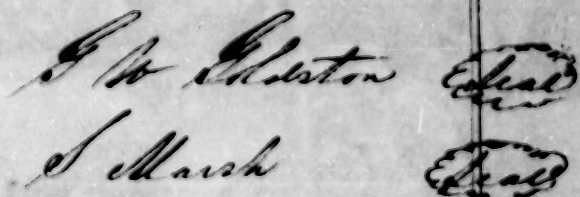 G W Goldston Seal
S Marsh Seal